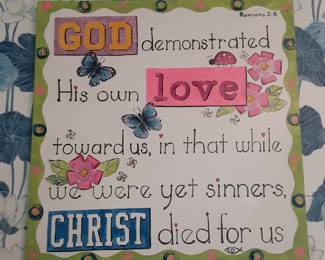 Romans 5:8
GOD demonstrated
His own love
toward us, in that while
we were yet sinners,
CHRIST died for us